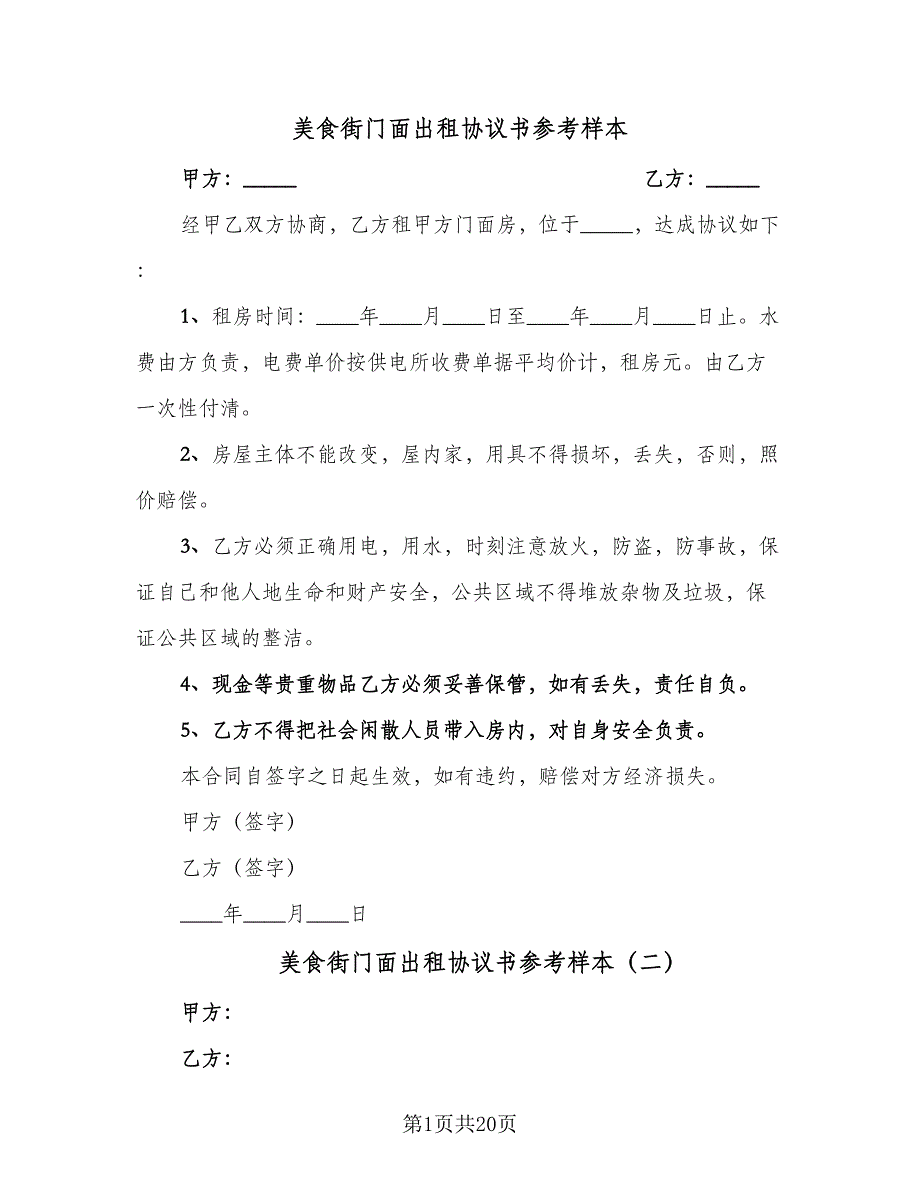 美食街门面出租协议书参考样本
甲方：_____ 乙方：_____
经甲乙双方协商，乙方租甲方门面房，位于_____，达成协议如下
：
1、租房时间：____年____月____日至____年____月____日止。水
费由方负责，电费单价按供电所收费单据平均价计，租房元。由乙方
一次性付清。
2、房屋主体不能改变，屋内家，用具不得损坏，丢失，否则，照
价赔偿。
3、乙方必须正确用电，用水，时刻注意放火，防盗，防事故，保
证自己和他人地生命和财产安全，公共区域不得堆放杂物及垃圾，保
证公共区域的整洁。
4、现金等贵重物品乙方必须妥善保管，如有丢失，责任自负。
5、乙方不得把社会闲散人员带入房内，对自身安全负责。
本合同自签字之日起生效，如有违约，赔偿对方经济损失。
甲方（签字）
乙方（签字）
____年____月____日
美食街门面出租协议书参考样本（二）
甲方：
乙方：
第1页共20页